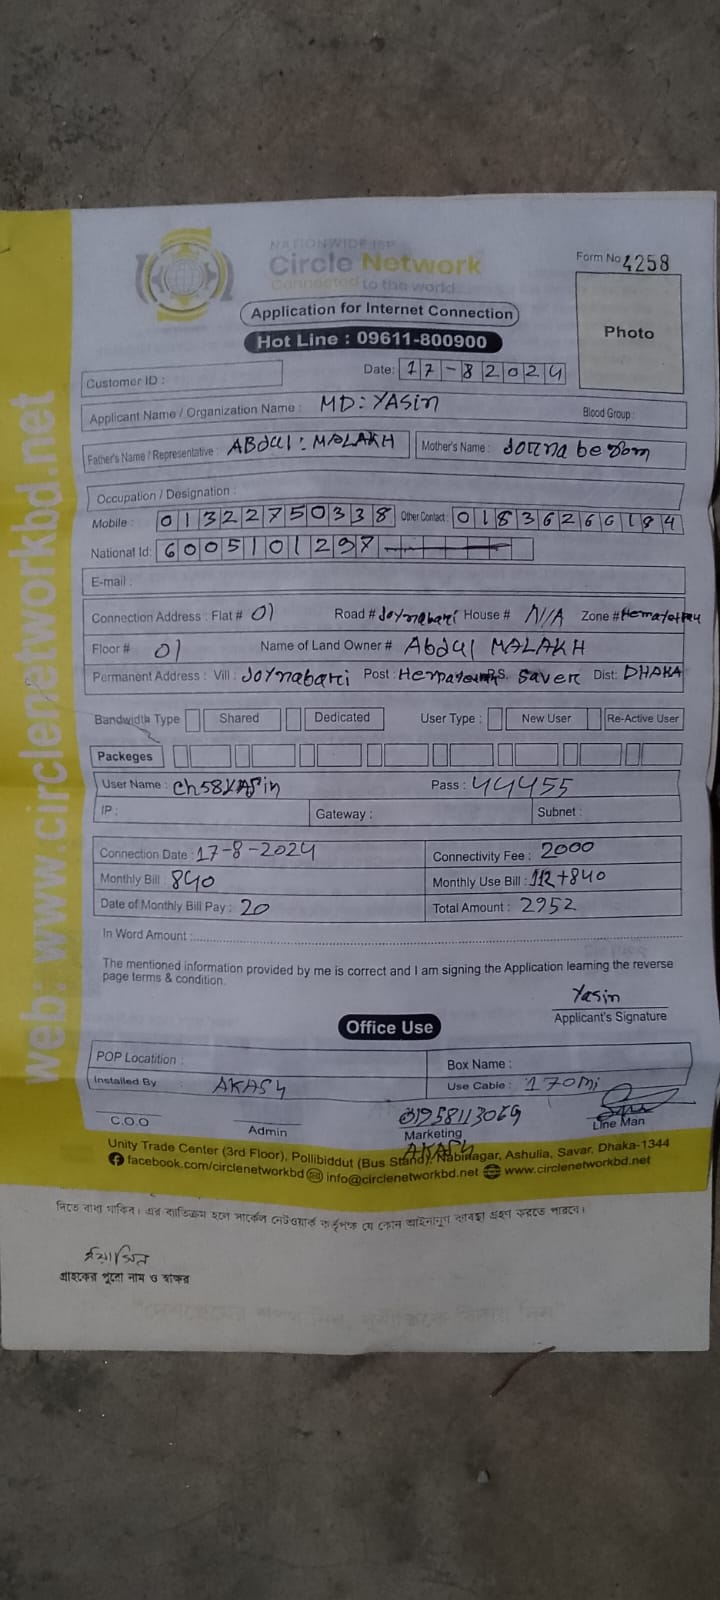 NATIONWIDE ISP
Circle Network
Connected to the world
Form No 4258
Application for Internet Connection
Photo
Hot Line : 09611-800900
Customer ID :
Date: 17-82024
Applicant Name / Organization Name : MD: YASin
Blood Group :
Father's Name / Representative : ABdul: MALAKH
Mother's Name : Jorna begom
Occupation / Designation :
Mobile : 01322750338 Other Contact : 01836266184
National Id: 6005101297
E-mail :
Connection Address : Flat # 01 Road # Joynabari House # N/A Zone #
Floor # 01 Name of Land Owner # Abdul MALAKH
Permanent Address : Vill : Joynabari Post : P.S. Saver Dist: DHAKA
Bandwidth Type Shared Dedicated User Type : New User Re-Active User
Packeges
User Name : Pass : 44455
IP : Gateway : Subnet :
Connection Date : 17-8-2024 Connectivity Fee : 2000
Monthly Bill : 840 Monthly Use Bill : 112+840
Date of Monthly Bill Pay : 20 Total Amount : 2952
In Word Amount :
The mentioned information provided by me is correct and I am signing the Application learning the reverse
page terms & condition.
Yasin
Applicant's Signature
Office Use
POP Locatition : Box Name :
Installed By : AKASH Use Cable : 170mi
01958113069
C.O.O Admin Marketing Line Man
AKASH
Unity Trade Center (3rd Floor), Pollibiddut (Bus Stand), Nabinagar, Ashulia, Savar, Dhaka-1344
facebook.com/circlenetworkbd info@circlenetworkbd.net www.circlenetworkbd.net
web: www.circlenetworkbd.net
দিতে বাধ্য থাকিব। এর ব্যতিক্রম হলে সার্কেল নেটওয়ার্ক কর্তৃপক্ষ যে কোন আইনানুগ ব্যবস্থা গ্রহণ করতে পারবে।
ইয়াসিন
গ্রাহকের পুরো নাম ও স্বাক্ষর